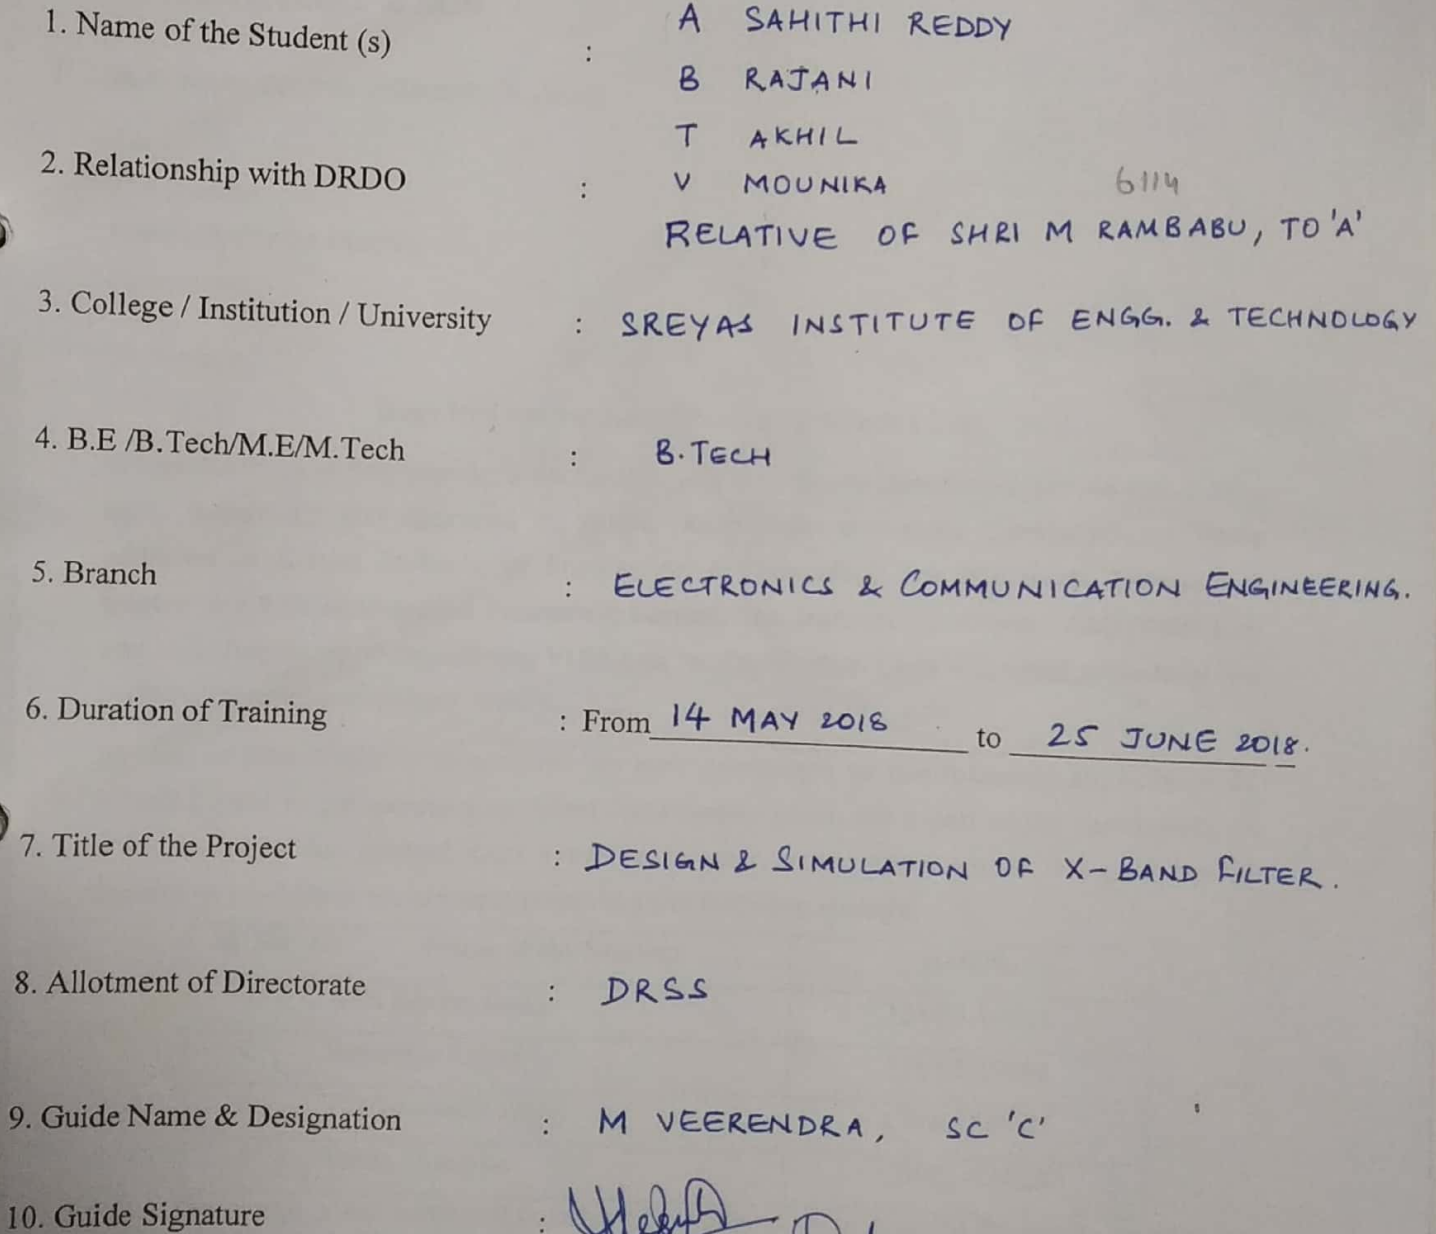 1. Name of the Student (s) : A SAHITHI REDDY
B RAJANI
T AKHIL
2. Relationship with DRDO : V MOUNIKA 6114
RELATIVE OF SHRI M RAMBABU, TO 'A'
3. College / Institution / University : SREYAS INSTITUTE OF ENGG. & TECHNOLOGY
4. B.E /B.Tech/M.E/M.Tech : B.TECH
5. Branch : ELECTRONICS & COMMUNICATION ENGINEERING.
6. Duration of Training : From 14 MAY 2018 to 25 JUNE 2018.
7. Title of the Project : DESIGN & SIMULATION OF X-BAND FILTER.
8. Allotment of Directorate : DRSS
9. Guide Name & Designation : M VEERENDRA, SC 'C'
10. Guide Signature :